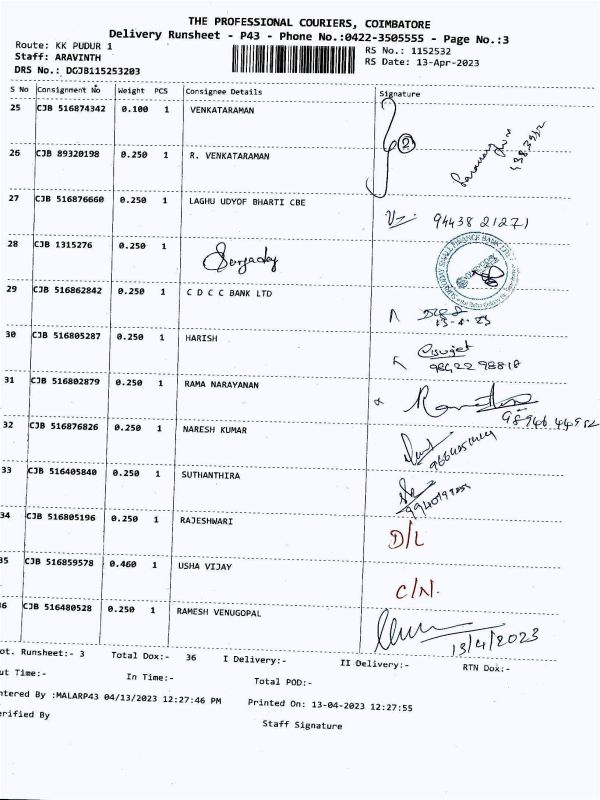 THE PROFESSIONAL COURIERS, COIMBATORE
Delivery Runsheet - P43 - Phone No.:0422-3505555 - Page No.:3
Route: KK PUDUR 1 RS No.: 1152532
Staff: ARAVINTH RS Date: 13-Apr-2023
DRS No.: DGJB115253203
S No Consignment No Weight PCS Consignee Details Signature
25 CJB 516874342 0.100 1 VENKATARAMAN
2
26 CJB 89320198 0.250 1 R. VENKATARAMAN
27 CJB 516876660 0.250 1 LAGHU UDYOF BHARTI CBE
94438 21271
28 CJB 1315276 0.250 1
29 CJB 516862842 0.250 1 C D C C BANK LTD
13-4-23
30 CJB 516805287 0.250 1 HARISH
98422 98818
31 CJB 516802879 0.250 1 RAMA NARAYANAN
98946 44952
32 CJB 516876826 0.250 1 NARESH KUMAR
33 CJB 516405840 0.250 1 SUTHANTHIRA
34 CJB 516805196 0.250 1 RAJESHWARI
D/L
35 CJB 516859578 0.460 1 USHA VIJAY
C/N.
36 CJB 516480528 0.250 1 RAMESH VENUGOPAL
13/4/2023
ot. Runsheet:- 3 Total Dox:- 36 I Delivery:- II Delivery:- RTN Dox:-
ut Time:- In Time:- Total POD:-
ntered By :MALARP43 04/13/2023 12:27:46 PM Printed On: 13-04-2023 12:27:55
erified By Staff Signature